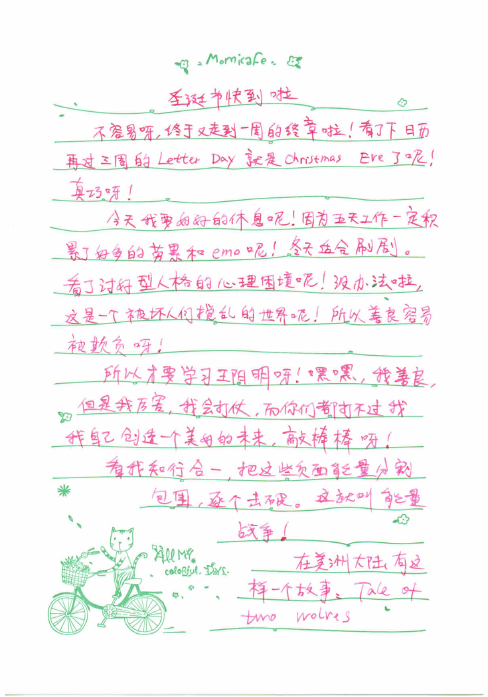 Momicafe
圣诞节快到啦
不容易呀,终于又走到一周的终章啦!看了下日历
再过三周的Letter Day 就是Christmas Eve了呢!
真巧呀!
今天我要好好的休息呢!因为五天工作一定积
累了好多的劳累和emo呢!冬天适合刷剧。
看了讨好型人格的心理困境呢!没办法啦,
这是一个被坏人们搅乱的世界呢!所以善良容易
被欺负呀!
所以才要学习王阳明呀!嘿嘿,我善良,
但是我厉害,我会打仗,而你们都打不过我
我自己创造一个美好的未来,敲棒棒呀!
看我知行合一,把这些负面能量分割
包围,逐个击破。这就叫能量
战争!
All My
colorful Days.
在美洲大陆,有这
样一个故事:Tale of
two wolves